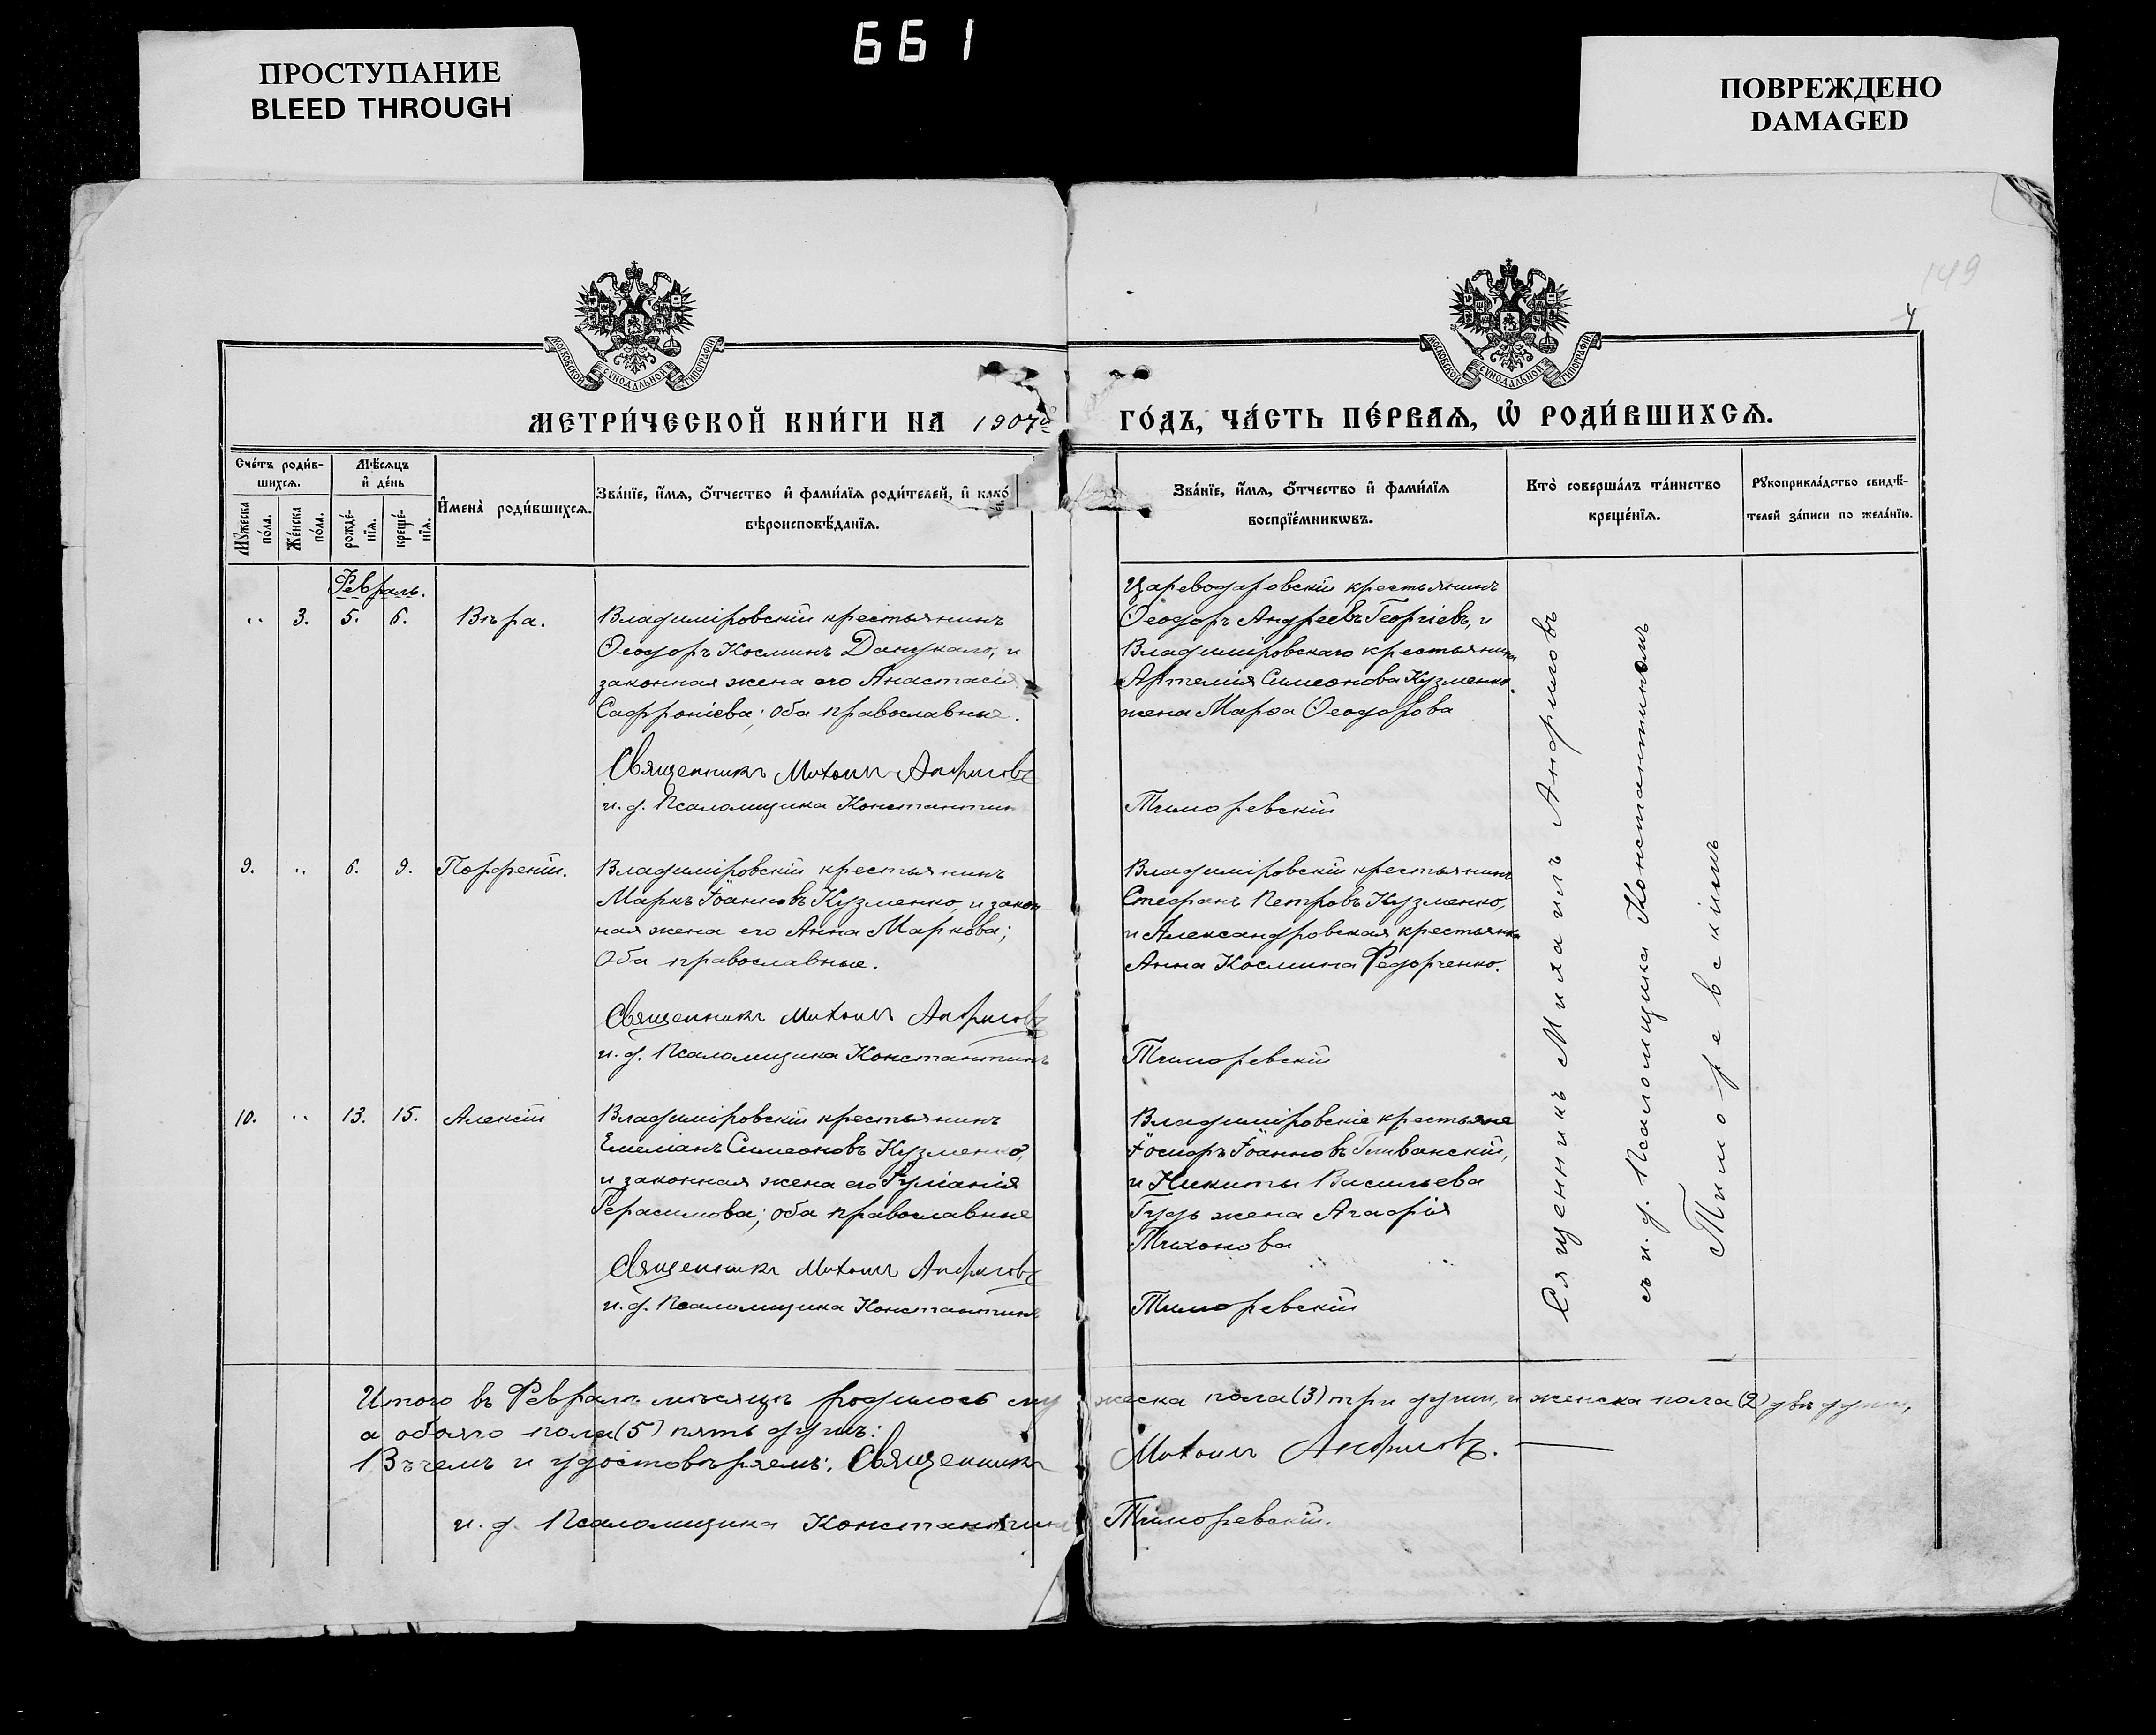 661
ПРОСТУПАНИЕ
BLEED THROUGH
ПОВРЕЖДЕНО
DAMAGED
149
4
МОСКОВСКОЙ СѴНОДАЛЬНОЙ ТИПОГРАФІИ
МОСКОВСКОЙ СѴНОДАЛЬНОЙ ТИПОГРАФІИ
МЕТРИ́ЧЕСКОЙ КНИ́ГИ НА 1907й ГО́ДЪ, ЧА́СТЬ ПЕ́РВАѦ, Ѡ РОДИ́ВШИХСѦ.
Сче́тъ роди́в-
шихсѧ.
Мꙋжеска
по́ла.
Же́нска
по́ла.
Мѣ́сѧцъ
и҆ де́нь
рожде́-
нїѧ.
креще́-
нїѧ.
И҆мена̀ роди́вшихсѧ.
Зва́нїе, и҆́мѧ, ѻ҆́тчество и҆ фами́лїѧ роди́телей, и҆ како́
вѣроисповѣ́данїѧ.
Зва́нїе, и҆́мѧ, ѻ҆́тчество и҆ фами́лїѧ
воспрїе́мникѡвъ.
Кто̀ соверша́лъ та́инство
креще́нїѧ.
Рꙋкоприкла́дство свидѣ́-
телей за́писи по жела́нїю.
Февраль.
" 3. 5. 6. Вѣра.
Владимiровскiй крестьянинъ
Ѳеодоръ Косминъ Данукало, и
законная жена его Анастасiя
Сафронiева; оба православные.
Священникъ Михаилъ Анфимовъ
и. д. Псаломщика Константинъ
Цареводаровскiй крестьянинъ
Ѳеодоръ Андреевъ Георгiевъ, и
Владимiровскаго крестьянина
Артемiя Симеонова Кузменко
жена Марѳа Ѳеодорова
Тиморевскiй
9. " 6. 9. Порфенiй.
Владимiровскiй крестьянинъ
Маркъ Iоанновъ Кузменко, и закон-
ная жена его Анна Маркова;
Оба православные.
Священникъ Михаилъ Анфимовъ
и. д. Псаломщика Константинъ
Владимiровскiй крестьянинъ
Стефанъ Петровъ Кузменко,
и Александровская крестьянка
Анна Космина Федорченко.
Тиморевскiй
10. " 13. 15. Алексiй
Владимiровскiй крестьянинъ
Емелiанъ Симеоновъ Кузменко,
и законная жена его Iулiанiя
Герасимова; оба православные
Священникъ Михаилъ Анфимовъ
и. д. Псаломщика Константинъ
Владимiровскiе крестьяне
Iосифъ Iоанновъ
и Никиты Васильева
Гудь жена Агафiя
Тихонова
Тиморевскiй
Священникъ Михаилъ Анфимовъ
съ и. д. Псаломщика Константиномъ
Тиморевскимъ
Итого въ Февралѣ мѣсяцѣ родилось мужеска пола (3) три души, и женска пола (2) двѣ души,
а обояго пола (5) пять душъ:
Въ чемъ и удостовѣряемъ: Священникъ Михаилъ Анфимовъ.
и. д. Псаломщика Константинъ Тиморевскiй.